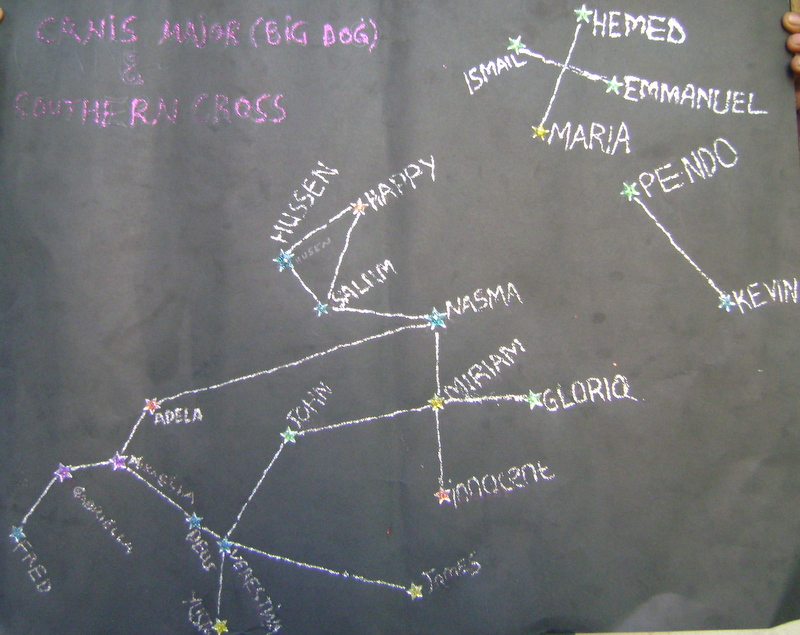 CANIS MAJOR (BIG DOG)
&
SOUTHERN CROSS
HEMED
ISMAIL
EMMANUEL
MARIA
PENDO
KEVIN
HUSSEN
HAPPY
HUSEN
SALUM
NASMA
MIRIAM
GLORIA
JOHN
ADELA
innocent
FRED
DEUS
JAMES